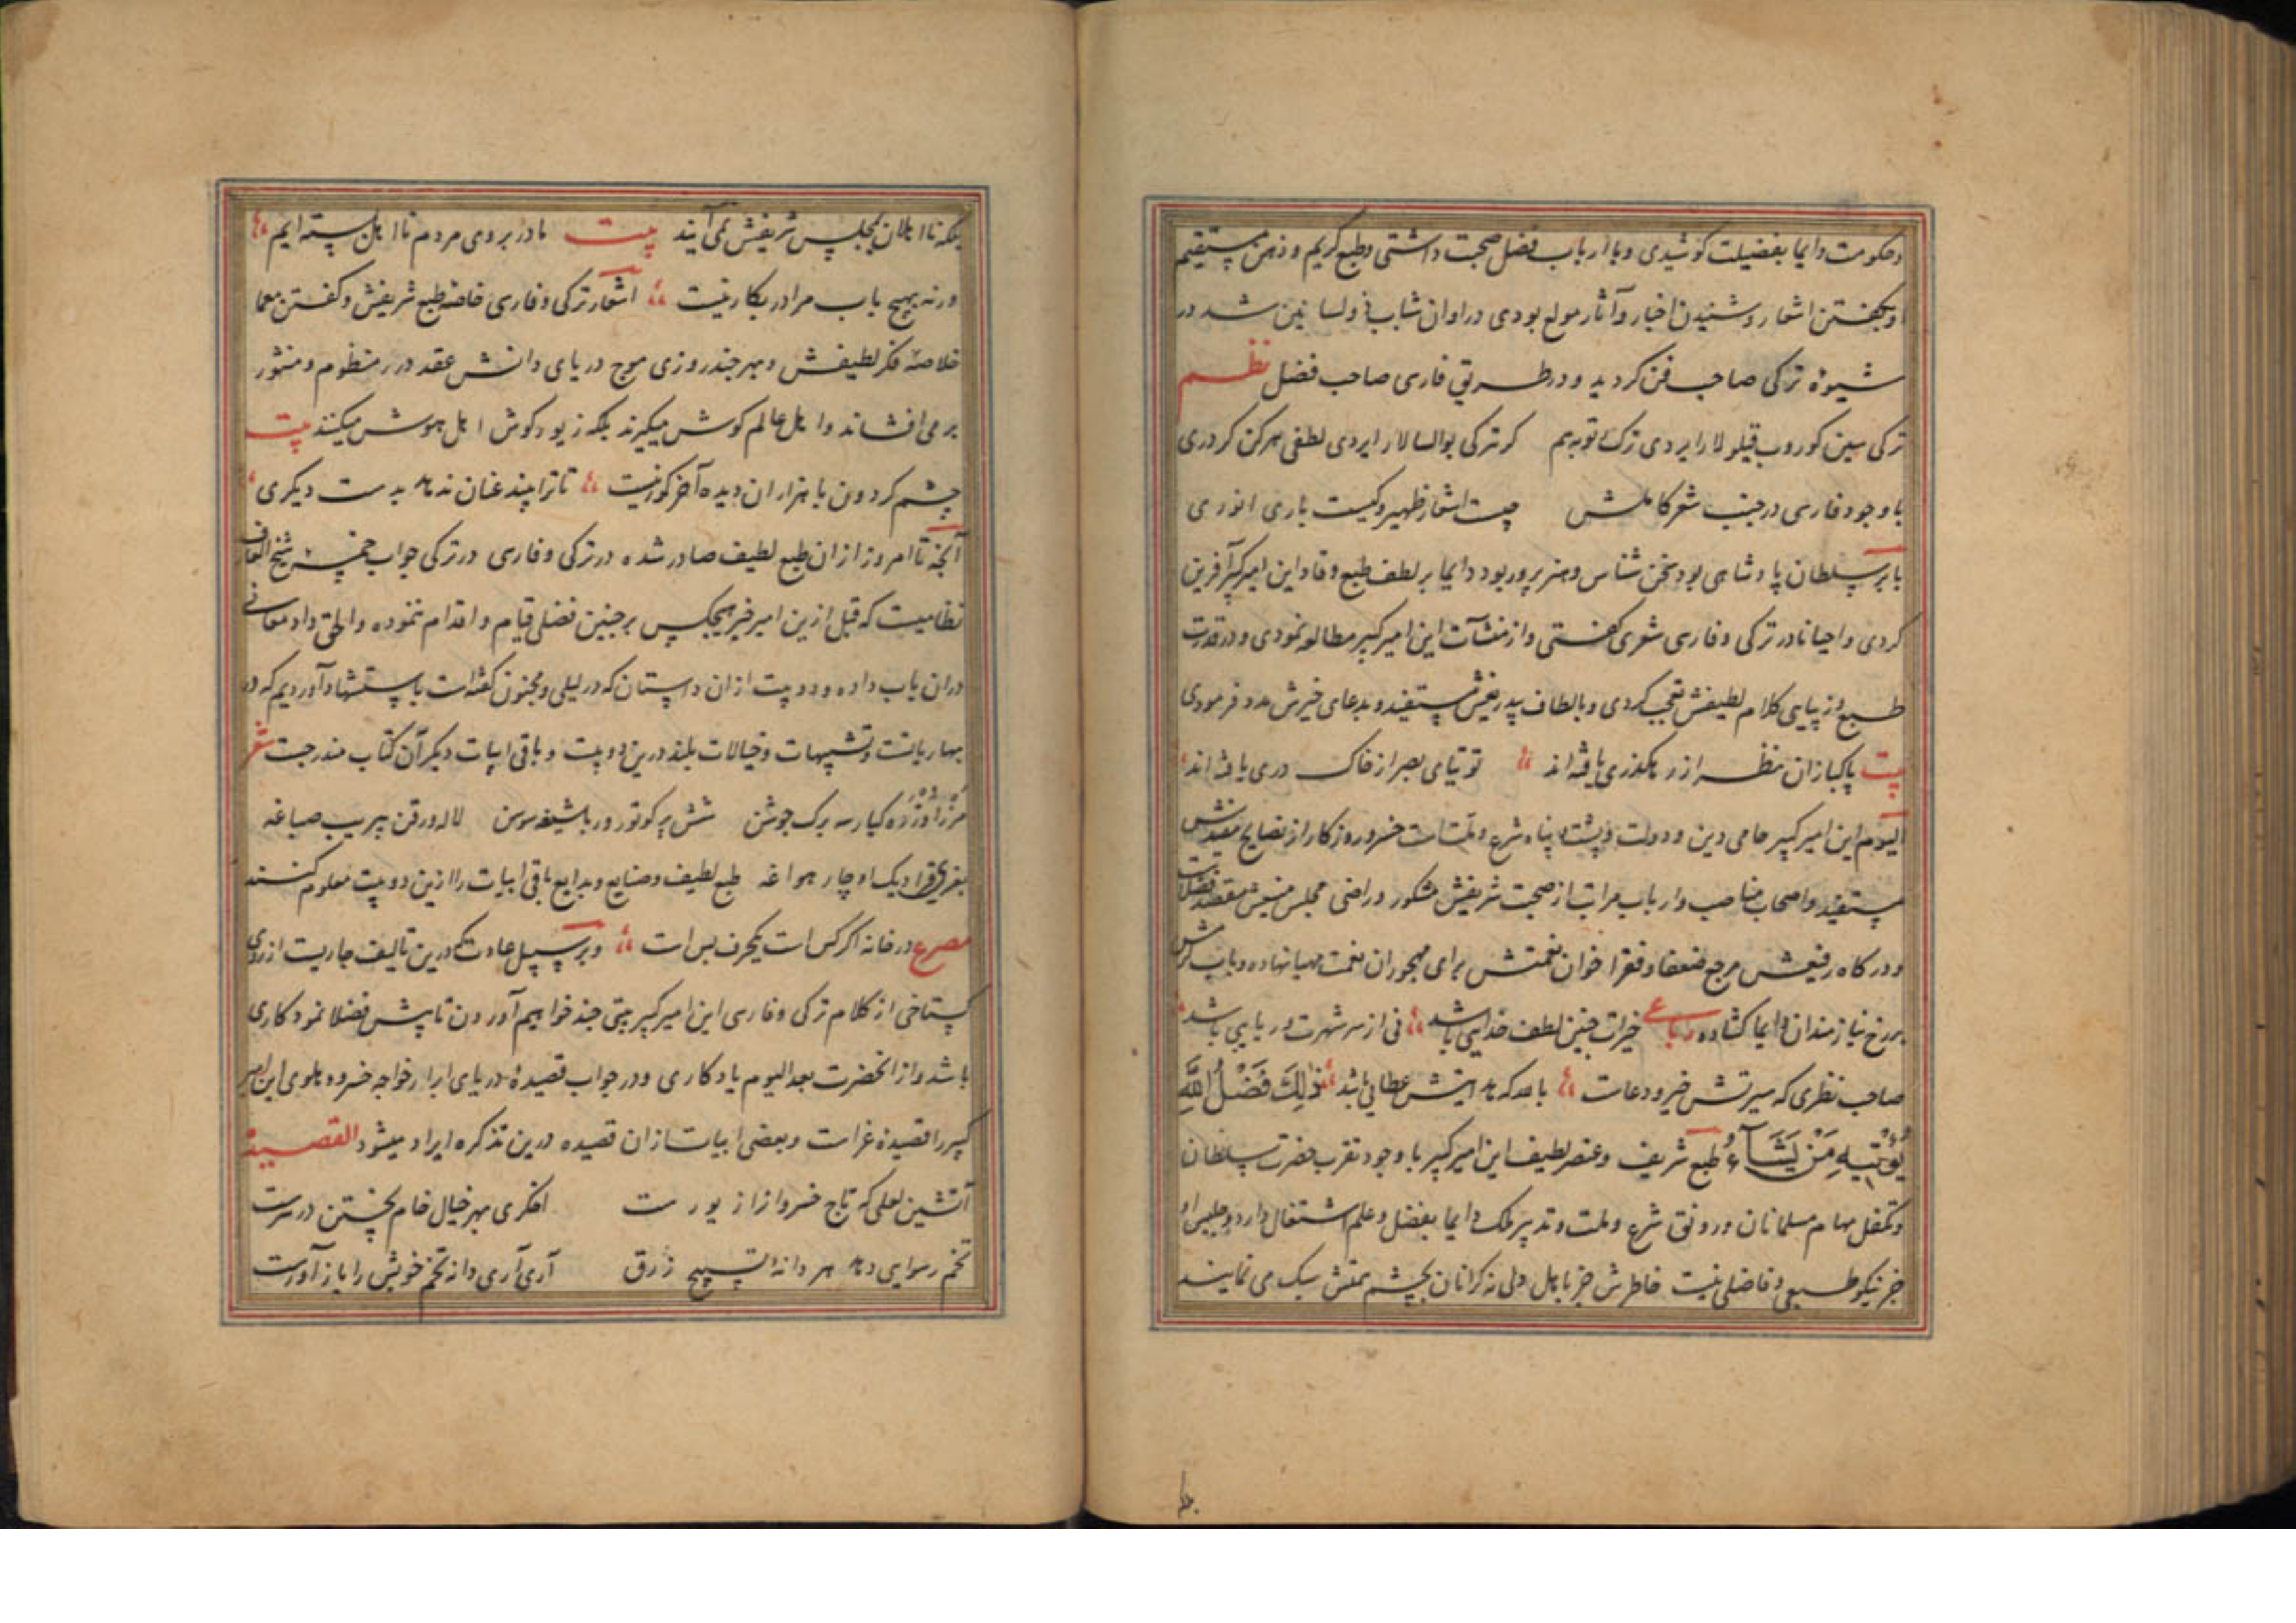 وحکومت دایما بفضیلت کوشیدی و با ارباب فضل صحبت داشتی و طبع کریم و ذهن مستقیم
او بکفتن اشعار و شنیدن اخبار و آثار مولع بودی در اوان شباب ذولسانین شد در
شیوهٔ ترکی صاحب فن کردید و در طریق فارسی صاحب فضل نظم
ترکی سین کوروب قیلور لار ایردی ترک توبه هم کر ترکی بولسالار ایردی لطفی بیرکن کردری
با وجود فارسی در جنب شعر کاملش چیست اشعار ظهیر و کیست باری انوری
بابر سلطان پادشاهی بود سخن شناس و هنرپرور بود دایما بر لطف طبع وقاد این امیر کبیر آفرین
کردی و احیانا در ترکی و فارسی شعری کفتی و از منشآت این امیر کبیر مطالعه نمودی و در قدرت
طبع و زیبایی کلام لطیفش تعجب کردی و بالطاف بیدریغش مستفید و بدعای خیرش مدد فرمودی
بیت پاکبازان نظر از رهکذری یافته اند توتیای بصر از خاک دری یافته اند
الیوم این امیر کبیر حامی دین و دولت و پشت و پناه شرع و ملتست خسرو روزکار از نصایح مفیدش
مستفید و اصحاب مناصب و ارباب مراتب از صحبت شریفش مشکور و راضی مجلس منیفش مقصد فضلاست
و درکاه رفیعش مرجع ضعفا و فقرا خوان نعمتش برای مهجوران نعمت مهیا نهاده و باب کرمش
بر رخ نیازمندان دایما کشاده رباعی خیرات چنین لطف خدایی باشد نی از سر شهرت و ریایی باشد
صاحب نظری که سیرتش خیر و دعاست بالله که نه اینش عطایی باشد ذٰلِكَ فَضْلُ اللّٰهِ
یُؤْتِیهِ مَنْ یَشَآءُ طبع شریف و عنصر لطیف این امیر کبیر با وجود تقرب حضرت سلطان
و تکفل مهام مسلمانان و رونق شرع و ملت و تدبیر ملک دایما بفضل و علم اشتغال دارد و جلیس او
جز نیکو طبعی و فاضلی نیست خاطرش جز با اهل دلی نه کرانان بچشم همتش سبک می نمایند
بلکه نااهلان بمجلس شریفش نمی آیند بیت ما در بروی مردم نااهل بسته ایم
ورنه بهیچ باب مرا در بکار نیست اشعار ترکی و فارسی خاصه طبع شریفش و کفتن معما
خلاصه فکر لطیفش و بهر چند روزی موج دریای دانش عقد درر منظوم و منثور
بر می افشاند و اهل عالم کوش میکیرند بلکه زیور کوش اهل هوش میکنند بیت
چشم کردون با هزاران دیده آخر کور نیست تا ترا بیند عنان ندهد بدست دیکری
آنچه تا امروز از ان طبع لطیف صادر شده در ترکی و فارسی در ترکی جواب خمسه شیخ العارف
نظامیست که قبل ازین امیر خیر هیچکس بر چنین فضلی قیام و اقدام ننموده و الحق داد معانی
دران باب داده و دو بیت از ان داستان که در لیلی و مجنون کفته است باستشهاد آوردیم که در
بهاریاتست و تشبیهات و خیالات بلند درین دو بیت و باقی ابیات دیکر آن کتاب مندرجست شعر
اوزره کیار سه برک جوشن شش پر کوتورور باشیغه سوسن لاله ورقن بیریب صباغه
قرادیک اوچار هواغه طبع لطیف و صنایع و بدایع باقی ابیات را ازین دو بیت معلوم کنند
مصرع در خانه اکر کس است یکحرف بس است و بر سبیل عادت که درین تالیف جاریست از روی
کستاخی از کلام ترکی و فارسی این امیر کبیر بیتی چند خواهیم آوردن تا پیش فضلا نمودکاری
باشد و از انحضرت بعد الیوم یادکاری و در جواب قصیدهٔ دریای ابرار خواجه خسرو دهلوی این امیر
کبیر را قصیدهٔ غراست و بعضی ابیات از ان قصیده درین تذکره ایراد میشود القصیده
آتشین لعلی که تاج خسروانرا زیورست اخکری بهر خیال خام پختن در سرست
تخم رسوایی دهد هر دانه تسبیح زرق آری آری دانه تخم خویش را بار آورست